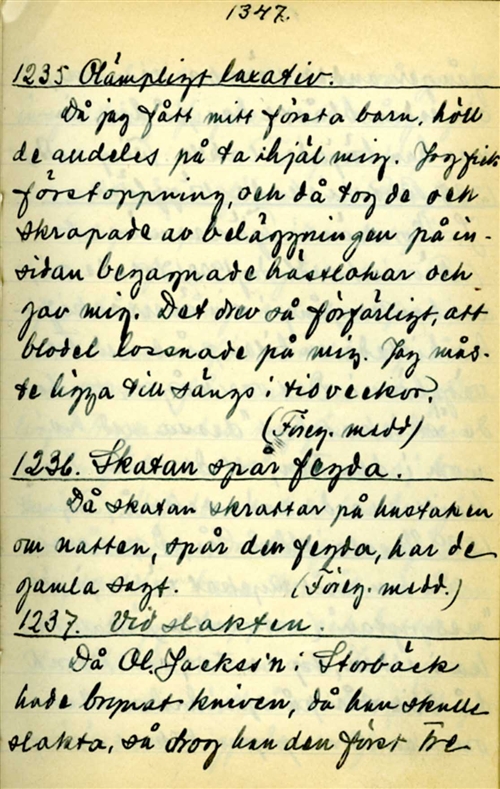 1347.
1235 Olämpligt laxativ.
Då jag fått mitt första barn, höll
de andeles på ta ihjäl mig. Jag fick
förstoppning, och då tog de och
skrapade av beläggningen på in-
sidan begagnade hästlokar och
gav mig. Det drev så förfärligt, att
blodet lossnade på mig. Jag mås-
te ligga till sängs i tio veckor.
(Föreg. medd)
1236. Skatan spår fegda.
Då skatan skrattar på hustaken
om natten, spår den fegda, har de
gamla sagt. (Föreg. medd.)
1237. Vid slakten.
Då Ol. Jackss'n i Storbäck
hade brynat kniven, då han skulle
slakta, så drog han den först tre